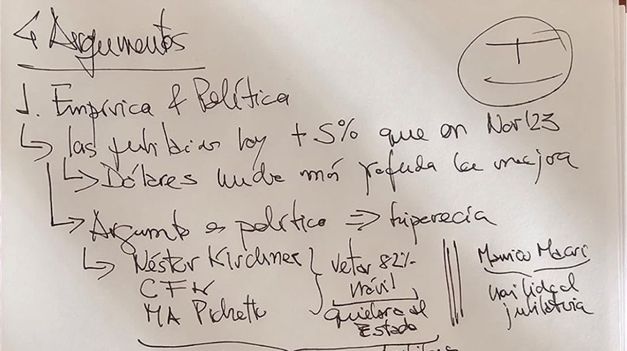 4 Argumentos
1. Empírica & Política
las jubilacion hoy + 5% que en Nov'23
Dólares mucho más profunda la mejora
Argumento es político => hipocrecía
Néstor Kirchner
CFK
MA Pichetto
vetar 82%
móvil
quiebra al
Estado
Mauricio Macri
movilidad
jubilatoria